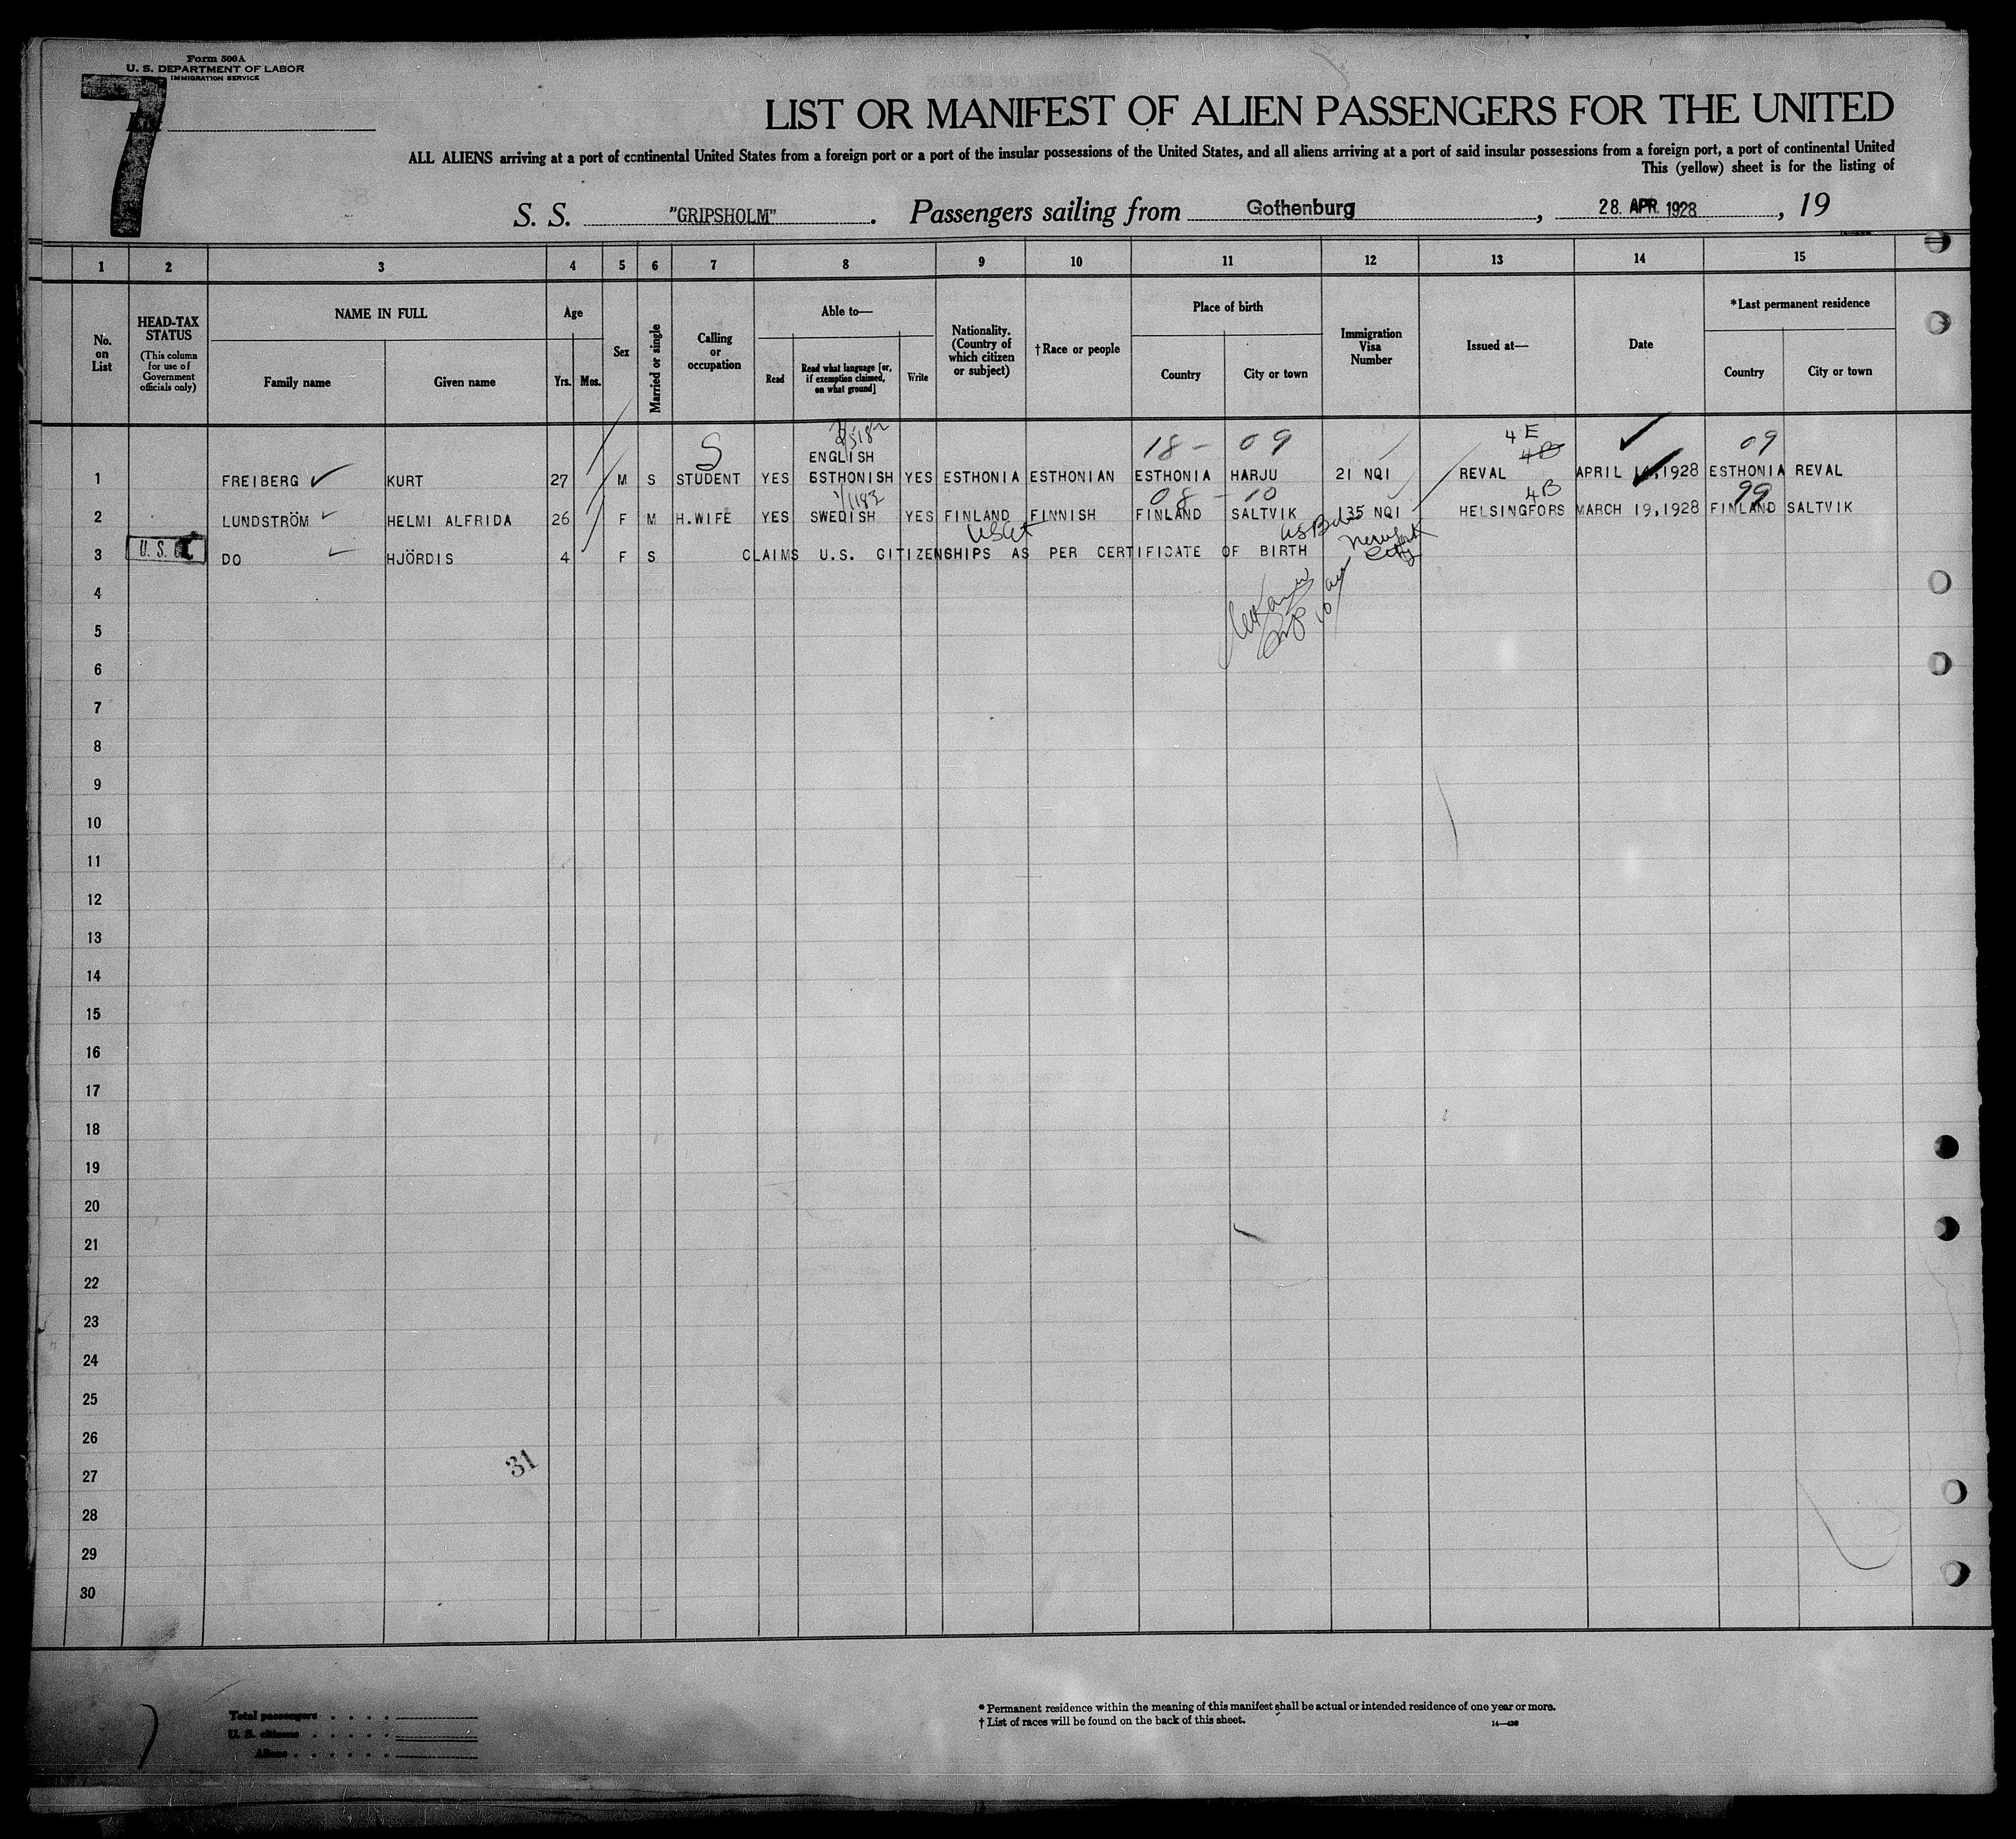 Form 500A
U. S. DEPARTMENT OF LABOR
IMMIGRATION SERVICE
7
LIST OR MANIFEST OF ALIEN PASSENGERS FOR THE UNITED
ALL ALIENS arriving at a port of continental United States from a foreign port or a port of the insular possessions of the United States, and all aliens arriving at a port of said insular possessions from a foreign port, a port of continental United
This (yellow) sheet is for the listing of
S. S. "GRIPSHOLM". Passengers sailing from Gothenburg, 28. APR. 1928, 19
1 2 3 4 5 6 7 8 9 10 11 12 13 14 15
No. on List
HEAD-TAX STATUS
(This column for use of Government officials only)
NAME IN FULL
Family name
Given name
Age
Yrs. Mos.
Sex
Married or single
Calling or occupation
Able to—
Read
Read what language [or, if exemption claimed, on what ground]
Write
Nationality. (Country of which citizen or subject)
†Race or people
Place of birth
Country
City or town
Immigration Visa Number
Issued at—
Date
*Last permanent residence
Country
City or town
S 18 - 09 4 E 4B 09
ENGLISH
1 FREIBERG KURT 27 M S STUDENT YES ESTHONISH YES ESTHONIA ESTHONIAN ESTHONIA HARJU 21 NQI REVAL APRIL 1928 ESTHONIA REVAL
08 - 10 4B 99
2 LUNDSTRÖM HELMI ALFRIDA 26 F M H.WIFE YES SWEDISH YES FINLAND FINNISH FINLAND SALTVIK 135 NQI HELSINGFORS MARCH 19,1928 FINLAND SALTVIK
New York City
3 U. S. C DO HJÖRDIS 4 F S CLAIMS U.S. CITIZENSHIPS AS PER CERTIFICATE OF BIRTH
4
5
6
7
8
9
10
11
12
13
14
15
16
17
18
19
20
21
22
23
24
25
26
31
27
28
29
30
Total passengers
U. S. citizens
Aliens
* Permanent residence within the meaning of this manifest shall be actual or intended residence of one year or more.
† List of races will be found on the back of this sheet.
14—430